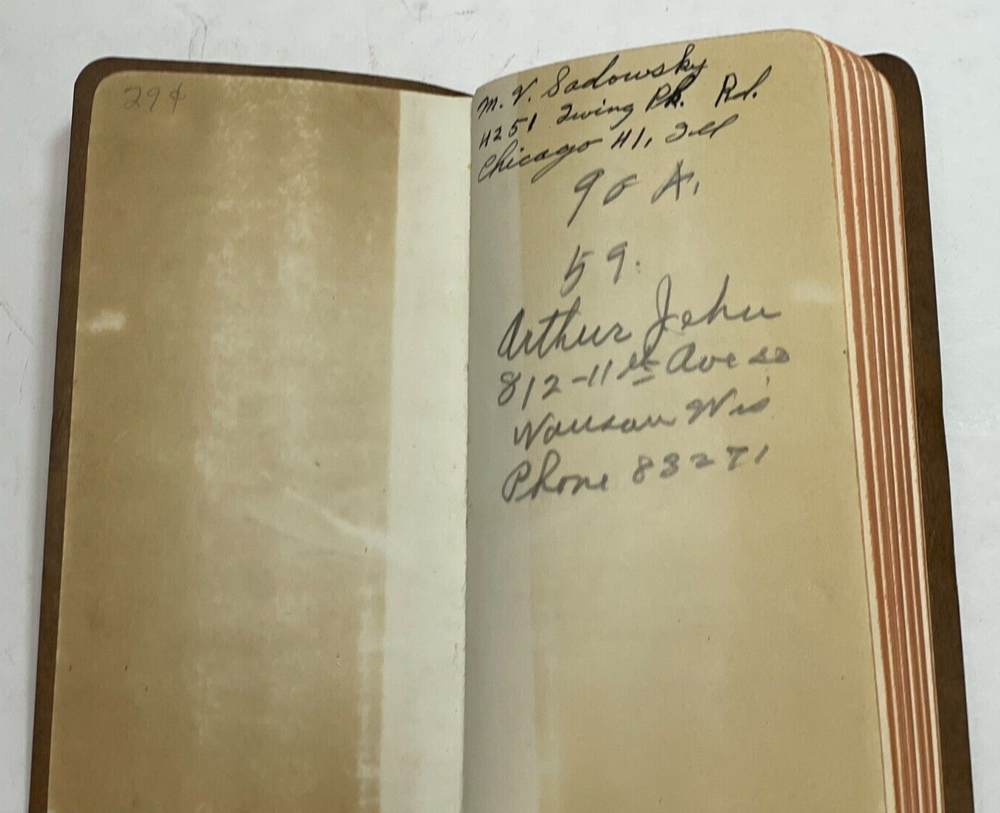 29¢
M. V. Sadowsky
4251 Irving Pk. Rd.
Chicago 41, Ill
90 A.
59.
Arthur Jehn
812-11th Ave so
Wausau Wis
Phone 83271